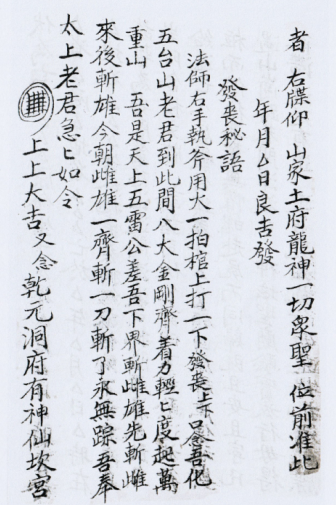 者 右牒仰 山家土府龍神一切衆聖 位前准此
年月厶日良吉發
發喪秘語
法師右手執斧用火一拍棺上打一下發喪上下口念吾化
五台山老君到此間八大金剛齊着力輕匕度起萬
重山 吾是天上五雷公差吾下界斬雌雄先斬雌
來後斬雄今朝雌雄一齊斬一刀斬了永無踪吾奉
太上老君急匕如令
上上大吉又念乾元洞府有神仙坎宮